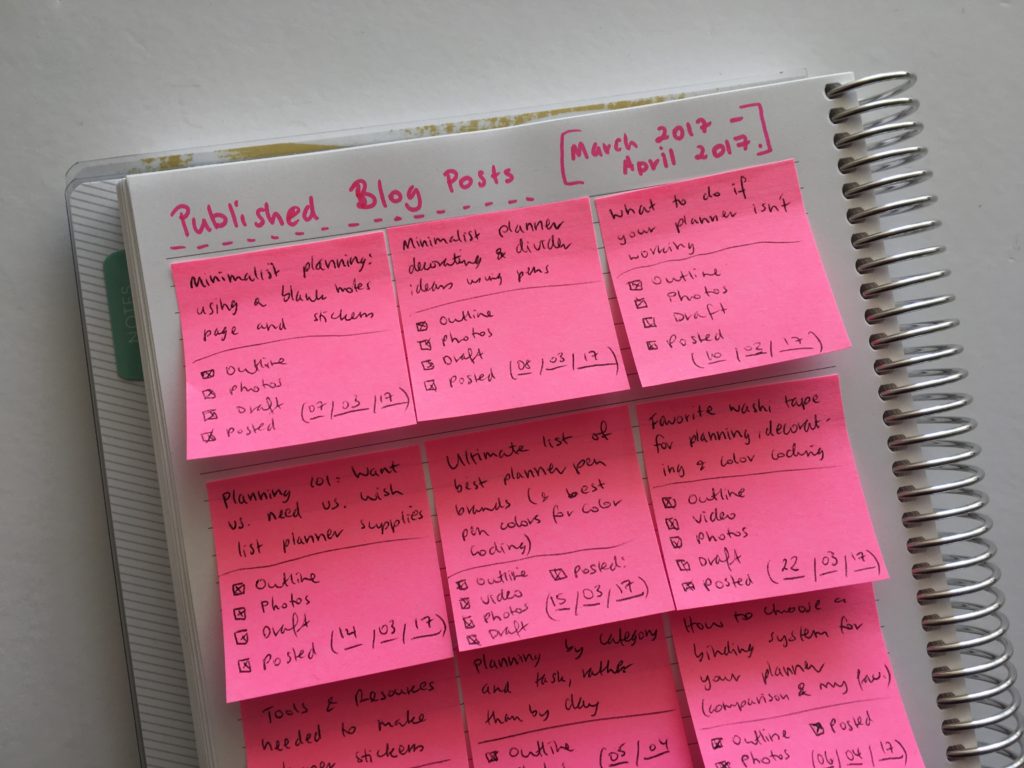 Published Blog Posts [March 2017 -
April 2017.]
Minimalist planning:
using a blank notes
page and stickers
Outline
Photos
Draft
Posted (07/03/17)
Minimalist planner
decorating & divider
ideas using pens
Outline
Photos
Draft
Posted (08/03/17)
What to do if
your planner isn't
working
Outline
Photos
Draft
Posted
(10/03/17)
Planning 101: Want
vs. need vs. wish
list planner supplies
Outline
Photos
Draft
Posted (14/03/17)
Ultimate list of
best planner pen
brands (& best
pen colors for color
coding)
Outline Posted:
Video
Photos (15/03/17)
Draft
Favorite washi tape
for planning, decorat-
ing & color coding
Outline
Video
Photos
Draft
Posted (22/03/17)
Tools & Resources
needed to make
stickers
Planning by category
and task, rather
than by day
Outline (05/04
How to choose a
binding system for
your planner
(comparison & my fav.)
Outline Posted
Photos (06/04/17)
NOTES